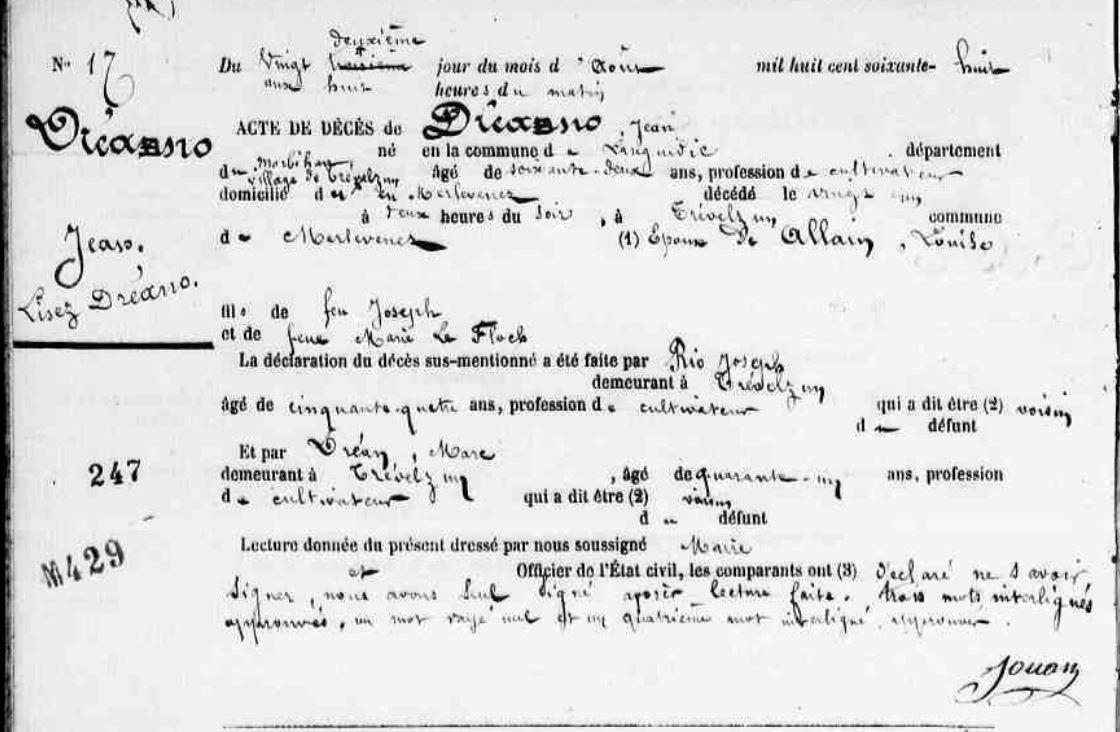 N° 17
Dréanno
Jean.
Lisez Dréano.
247
M429
deuxième
Du Vingt troisième jour du mois d'Août mil huit cent soixante-huit
aux huit heures du matin
ACTE DE DÉCÈS de Dréanno, Jean
né en la commune de Languidic département
du Morbihan, âgé de soixante-deux ans, profession de cultivateur
village de Trévelzun
domicilié en Merlevenez décédé le vingt un
à deux heures du soir, à Trévelzun commune
de Merlevenez (1) Epoux de Allain, Louise
fils de feu Joseph
et de feue Marie Le Floch
La déclaration du décès sus-mentionné a été faite par Rio Joseph
demeurant à Trévelzun
âgé de cinquante-quatre ans, profession de cultivateur qui a dit être (2) voisin
du défunt
Et par Dréan, Marc
demeurant à Trévelzun, âgé de quarante-un ans, profession
de cultivateur qui a dit être (2) voisin
du défunt
Lecture donnée du présent dressé par nous soussigné Maire
et Officier de l'État civil, les comparants ont (3) déclaré ne savoir
signer, nous avons seul signé après lecture faite. trois mots interlignés
approuvés, un mot rayé nul et un quatrième mot interligné, approuver.
Jouan